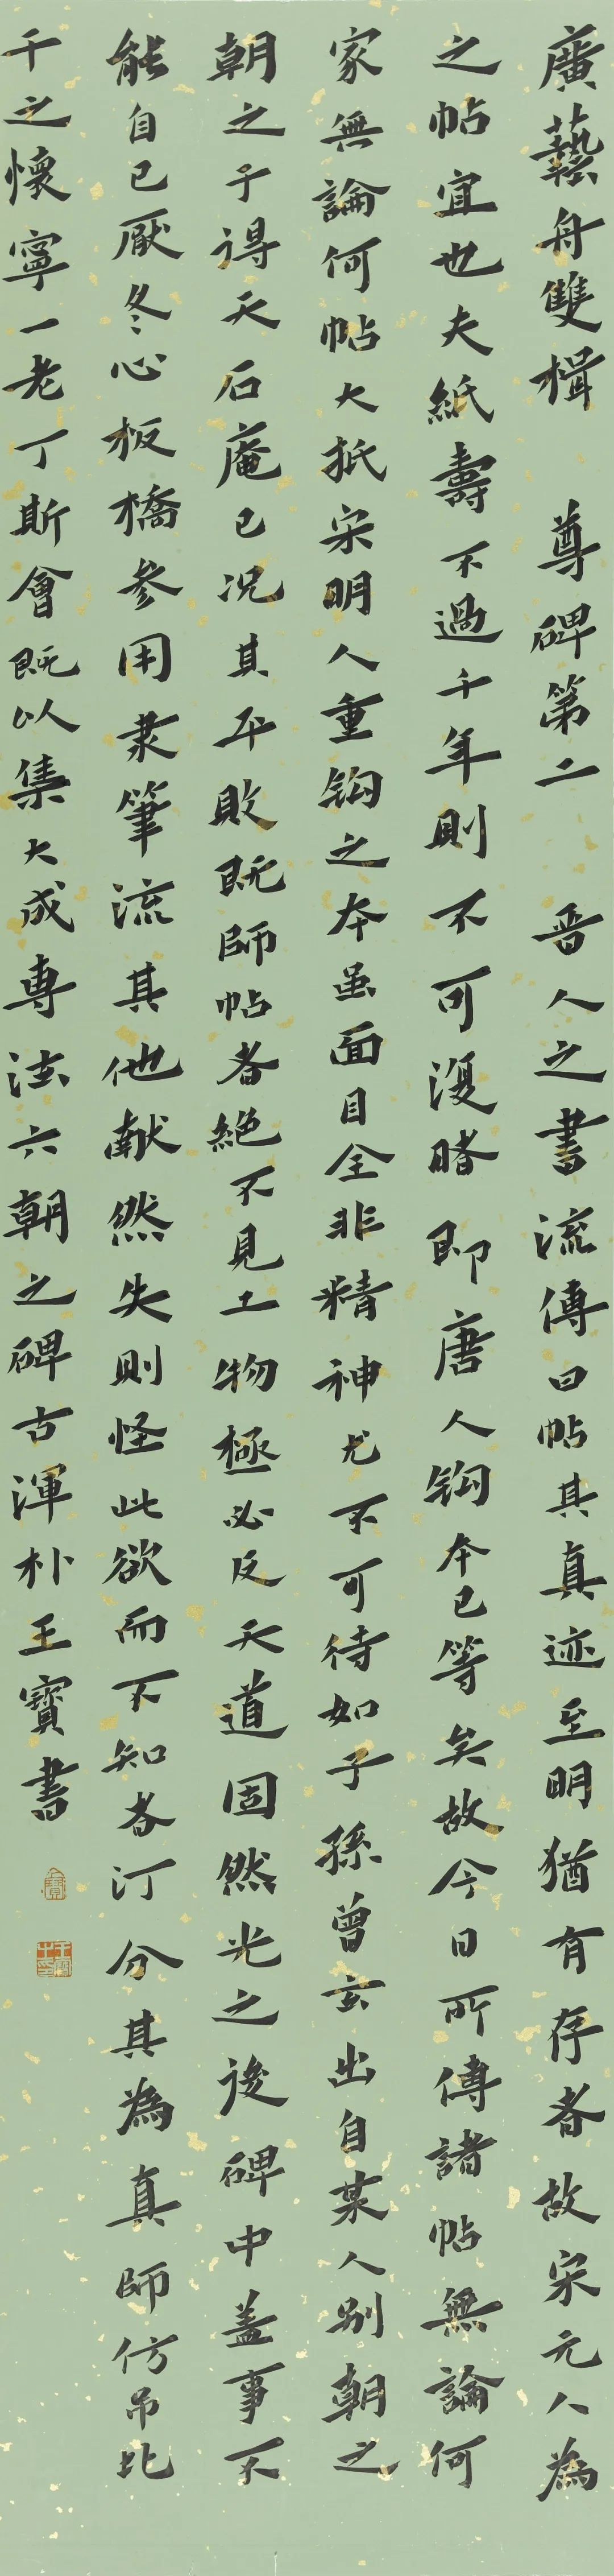 廣藝舟雙楫 尊碑第二 晋人之書流傳曰帖其真迹至明猶有存者故宋元人為
之帖宜也夫紙壽不過千年則不可復睹即唐人钩本已等矣故今日所傳諸帖無論何
家無論何帖大抵宋明人重钩之本虽面目全非精神尤不可待如子孫曾玄出自某人别朝之
朝之于得天石庵已况其平敗既師帖者絕不見工物極必反天道固然光之後碑中蓋事不
能自已厭冬心板橋參用隶筆流其他献然失則怪此欲而不知者汀分其為真師仿吊比
千之懷寧一老丁斯會既以集大成專法六朝之碑古渾朴王寶書